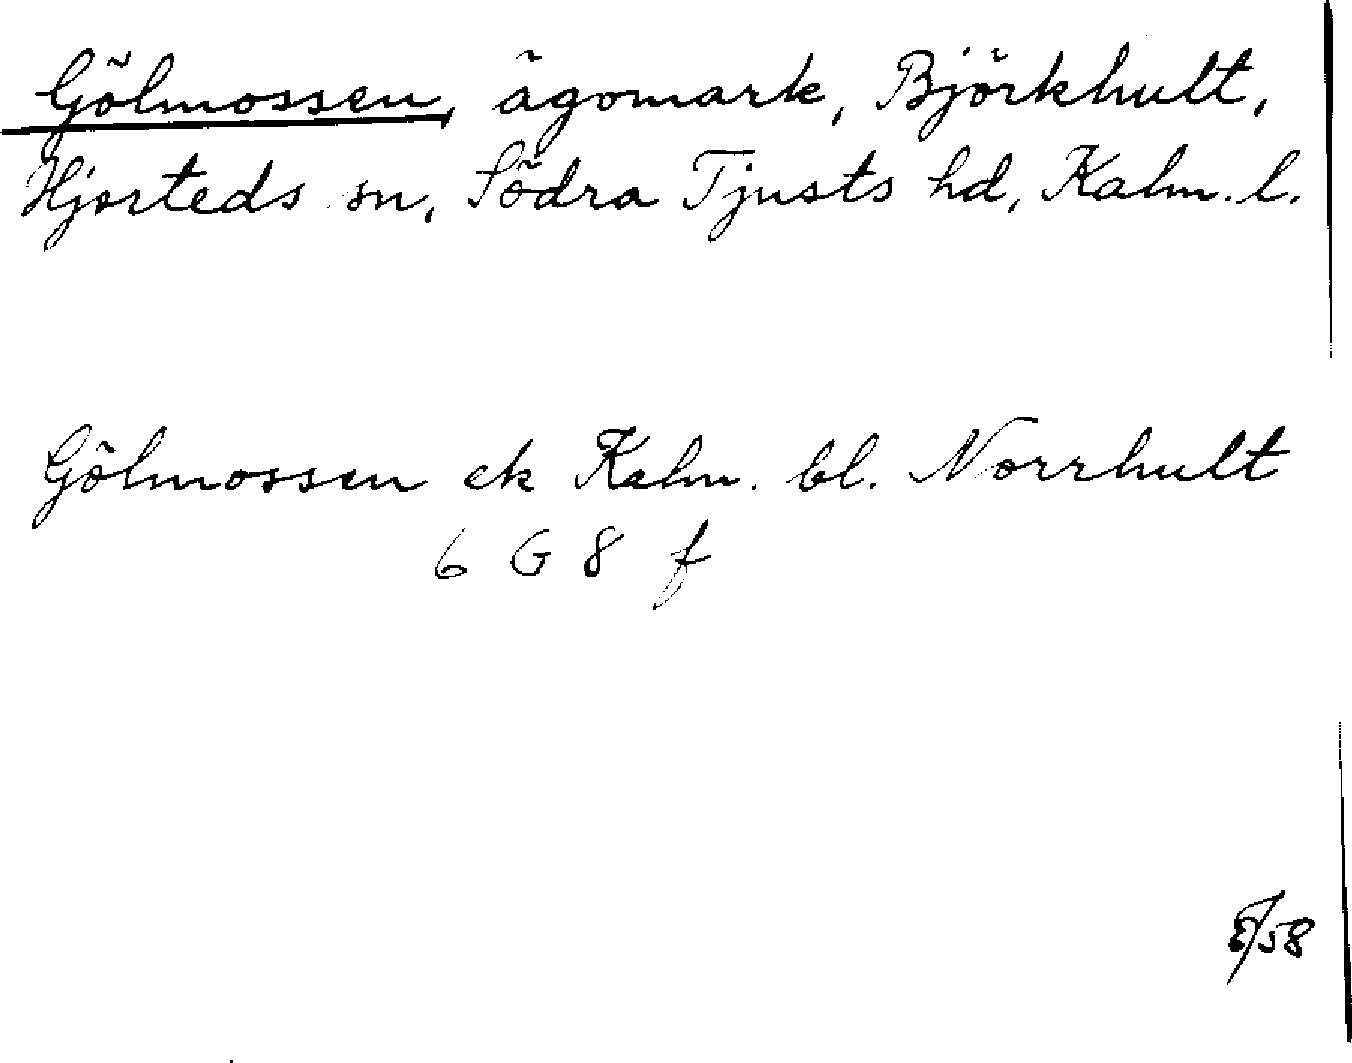 Gölmossen, ägomark, Björkhult,
Hjorteds sn, Södra Tjusts hd, Kalm. l.
Gölmossen ek Kalm. bl. Norrhult
6 G 8 f
/58